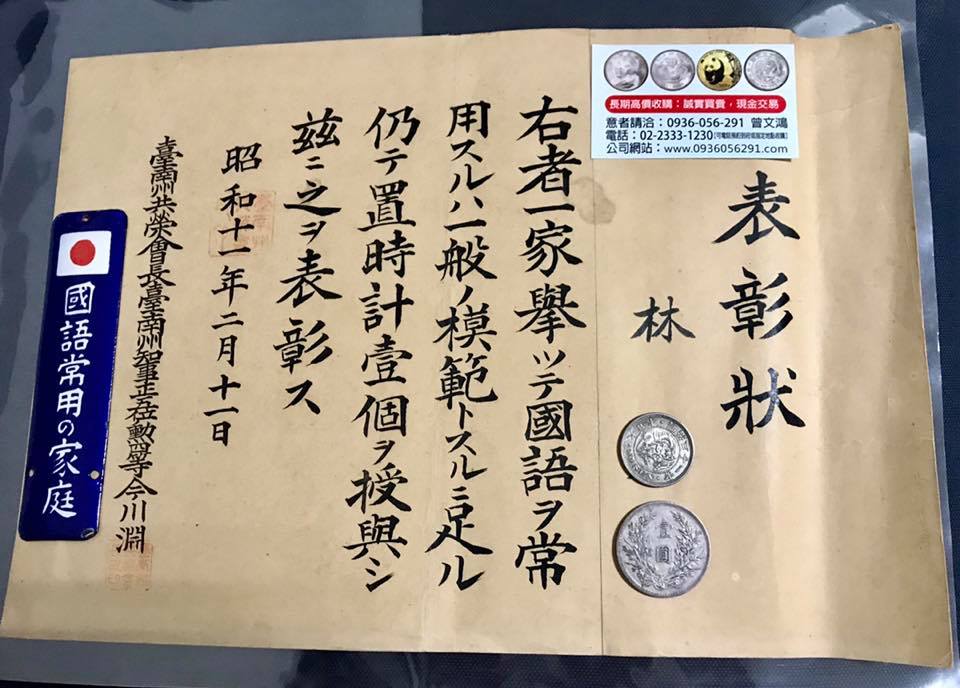 表彰狀
林
右者一家擧ッテ國語ヲ常
用スルハ一般ノ模範トスルニ足ル
仍テ置時計壹個ヲ授與シ
茲ニ之ヲ表彰ス
昭和十一年二月十一日
臺南州共榮會長臺南州知事正五位勲四等今川淵
國語常用の家庭
長期高價收購：誠實買賣，現金交易
意者請洽：0936-056-291 曾文鴻
電話：02-2333-1230
公司網站：www.0936056291.com
壹圓